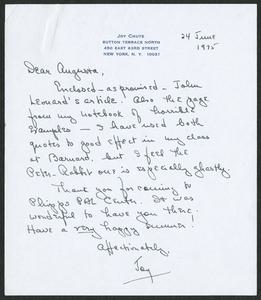 JOY CHUTE
SUTTON TERRACE NORTH
450 EAST 63RD STREET
NEW YORK, N. Y. 10021
24 June
1975
Dear Augusta,
Enclosed - as promised - John
Leonard's article. Also the page
from my notebook of horrible
examples - I have used both
quotes to good effect in my class
at Barnard, but I feel the
Peter Rabbit one is especially ghastly.
Thank you for coming to
Phipps PAL Center. It was
wonderful to have you there!
Have a very happy summer!
Affectionately,
Joy